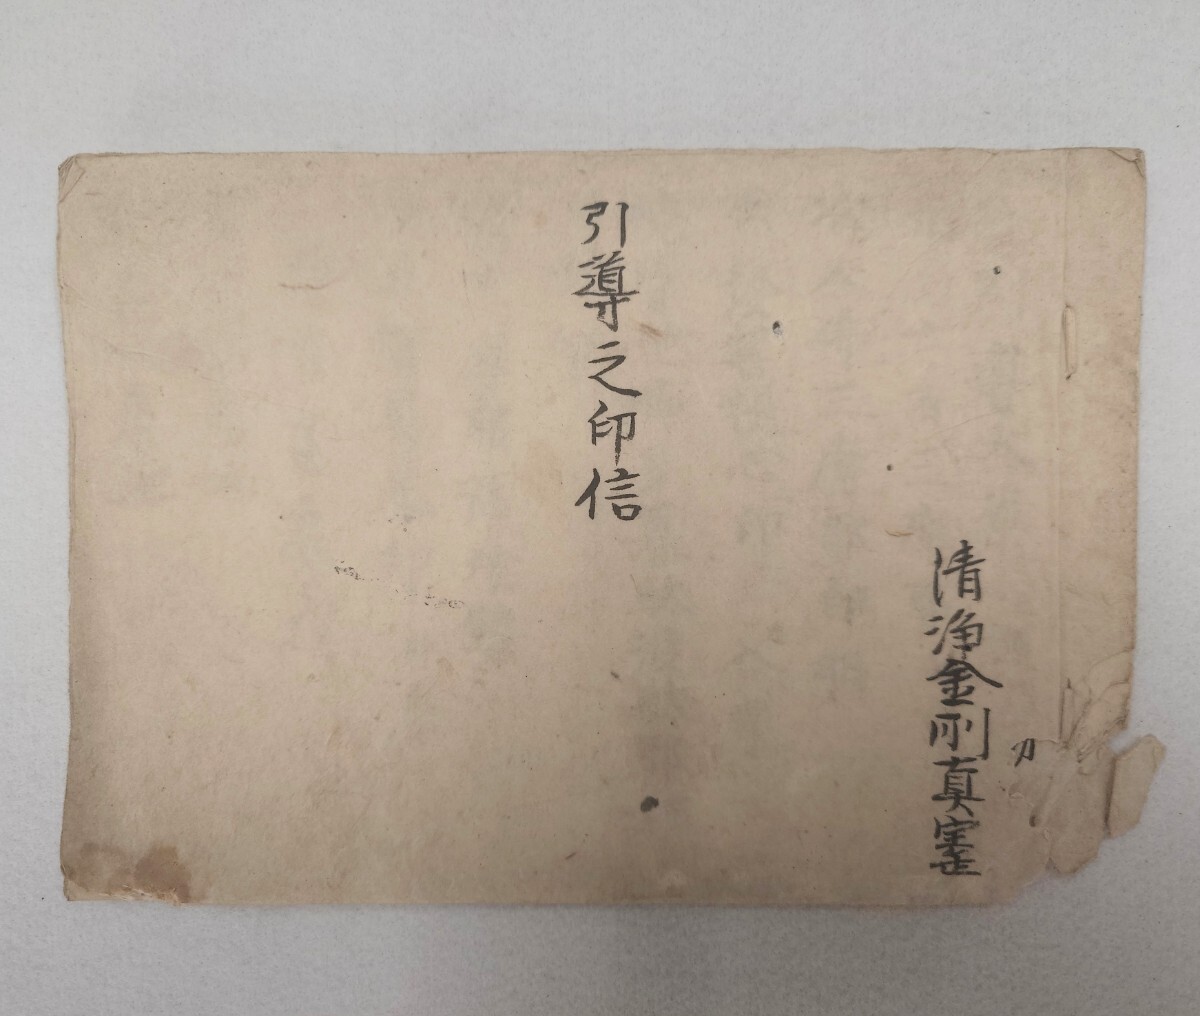 引導之印信
清浄金剛真